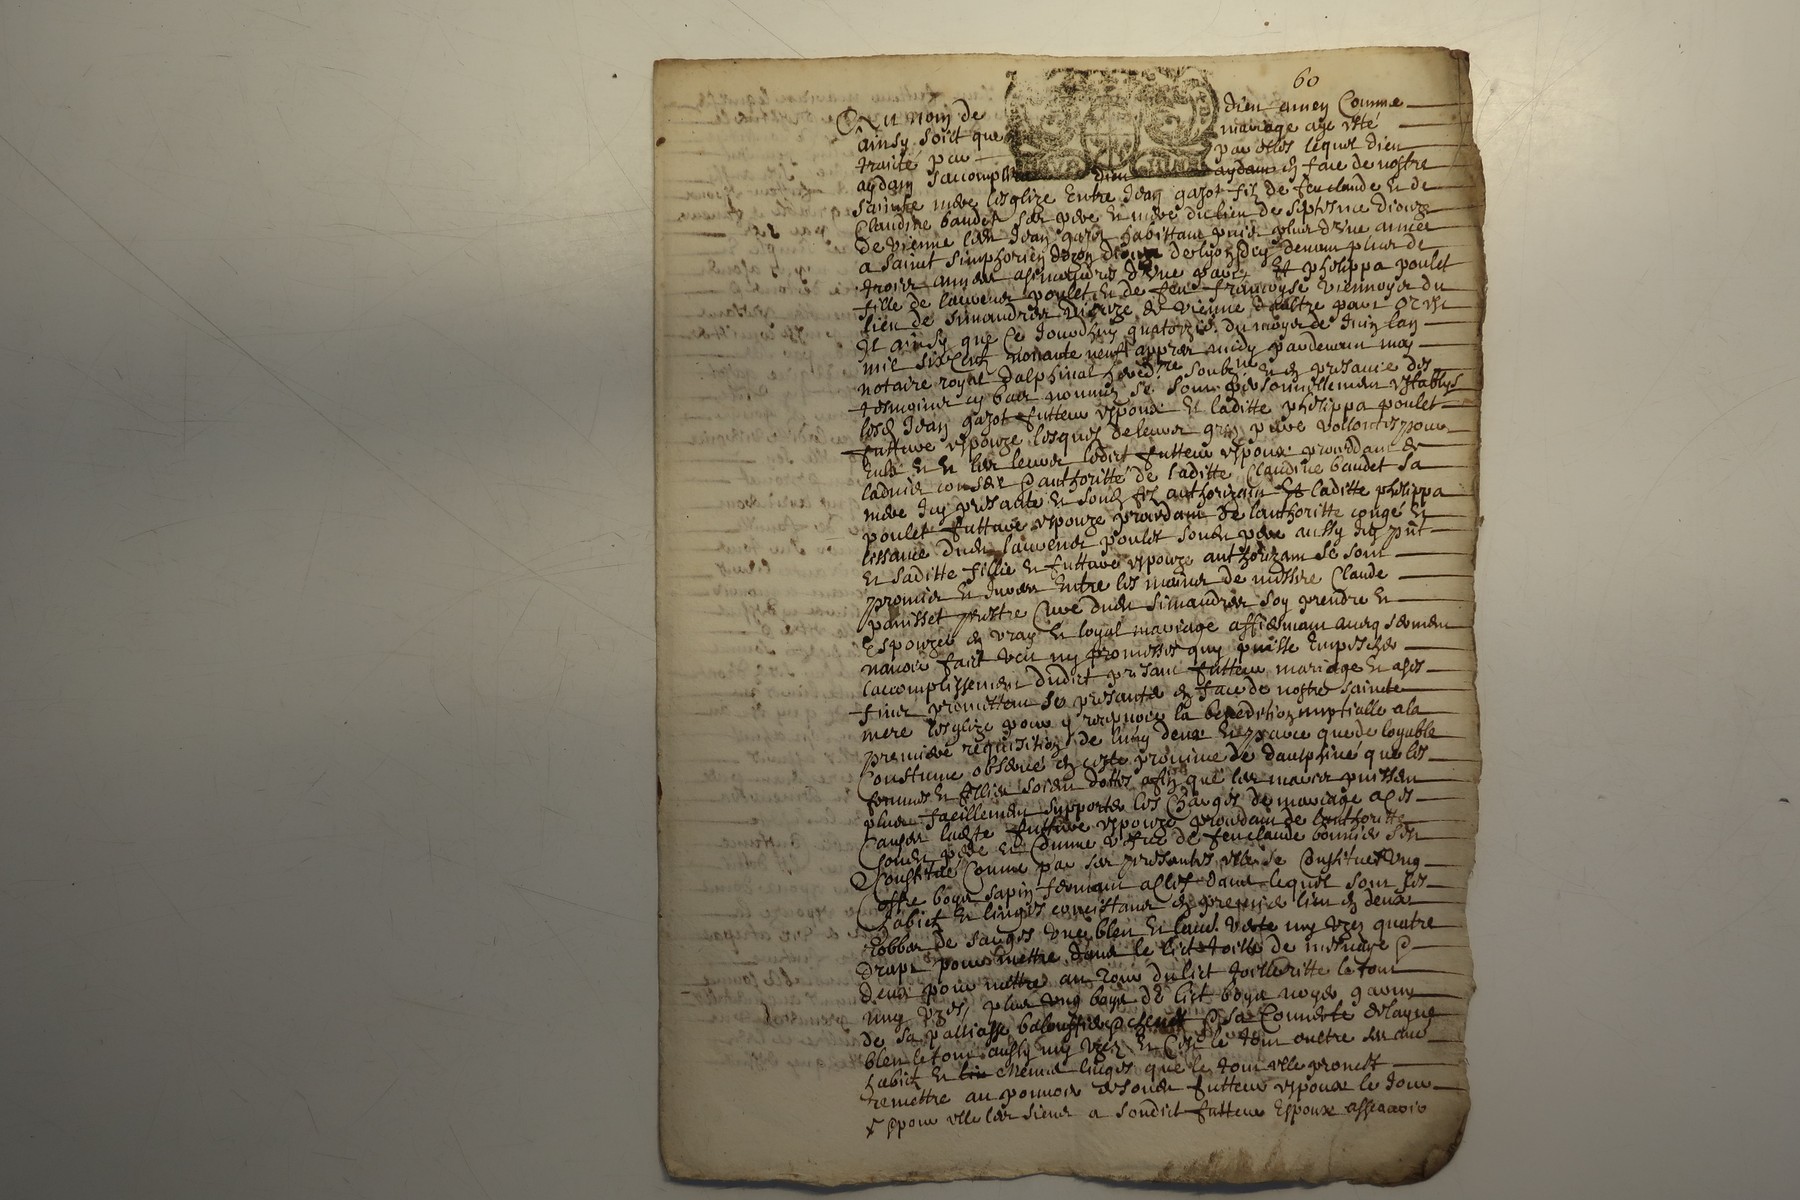 60
Au nom de dieu amen Comme
ainsy soict que mariage aye esté
traité par parolles lequel dieu
aydan saccomplira dieu aydan en face de nostre
saincte mere lesglize Entre Jean gazot filz de feu claude et de
Claudine baudet ses pere et mere du lieu de septesme dioceze
de vienne led Jean gazot habittant puis plus d'une annee
a saint simphorien dozon de lyon
trois annees d'une part Et phelippa poulet
fille de laurens poulet et de feu françoyse viennoyes du
lieu de simandres dioceze de vienne d'aultre part Or est
Il ainsy que Ce Jourdhuy quatorzie. du moys de Juin lan
mil six Cent nonante neufz appres midy pardevant moy
notaire royal dalphinal hered.re soubzne et en presance des
tesmoings cy bas nommes se sont personnellement establys
lesd Jean gazot futteur espoux Et laditte phelippa poulet
futture espouze lesquels de leurs gres pure vollontes pour
Eulx et les leurs ledict futteur espoux procedant de
ladvis conseil authoritte de laditte Claudine baudet sa
mere Icy presante et sond filz authorizant Et laditte phelippa
poulet futture espouze procedant de lauthoritte conge et
lissance dud laurens poulet sond pere aussy Icy pnt
Et saditte fillie et futture espouze authorizant se sont
promis et Jures Entre les mains de messire Claude
panisset prestre Cure dud simandres soy prendre et
Espouzer en vray et loyal mariage affirmant aveq serment
navoir faict veu ny promesses quy puisse Empescher
laccomplissement dudict presant futteur mariage Et a ses
fins promettent se presanter en face de nostre saincte
mere lesglize pour y recepvoir la benediction nuptialle a la
premiere requisition de lung deux Et parce que de loyable
Coustume observee en ceste province de dauphiné que les
femmes et fillies soient dottes affin que les maris puissent
plus facillement supporter les Charges de mariage a Ces
Causes ladte futture espouze procedant de lauthoritte
sond pere et Comme vefve de feu claude bonnier
Constitue Comme par ses presantes elle se Constitue Ung
Coffre boys sapin fermant a clef dans lequel sont ses
habictz et linges concistans en premier lieu en deux
Robbes de sarges une bleu et laud. verte my uzes quatre
draps pour mettre dans le lict toille de mesnage
deux pour mettre au tour du lict toille ritte le tout
my uzes, plus ung boys de lict boys noyer garny
de sa palliasse sa Couverte de layne
bleu le tout aussy my uzes Et Cest le tout oultre ses au
habictz et menus linges que le tout elle promect
remettre au pouvoir de sond futteur espoux le Jour
pour elle les siens a sondict futteur Espoux assavoir